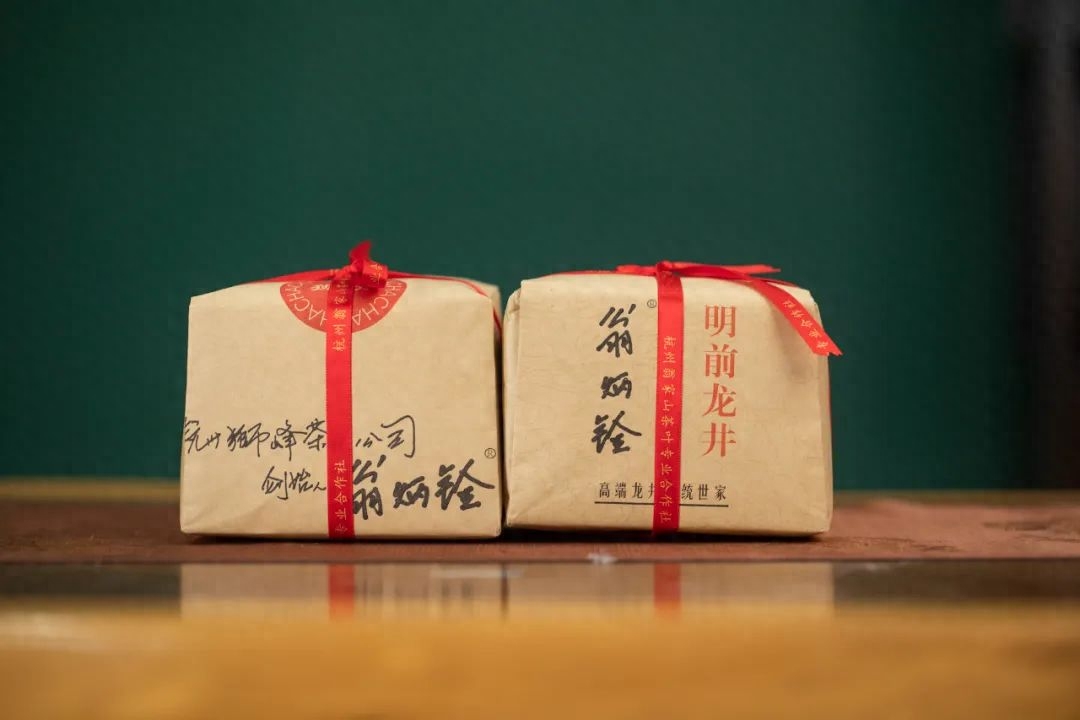 CHACHA
杭州翁家山
专业合作社
杭州狮峰茶 公司
创始人
翁炳铨
®
翁炳铨
®
明前龙井
杭州翁家山茶叶专业合作社
专业合作社
高端龙井 统世家